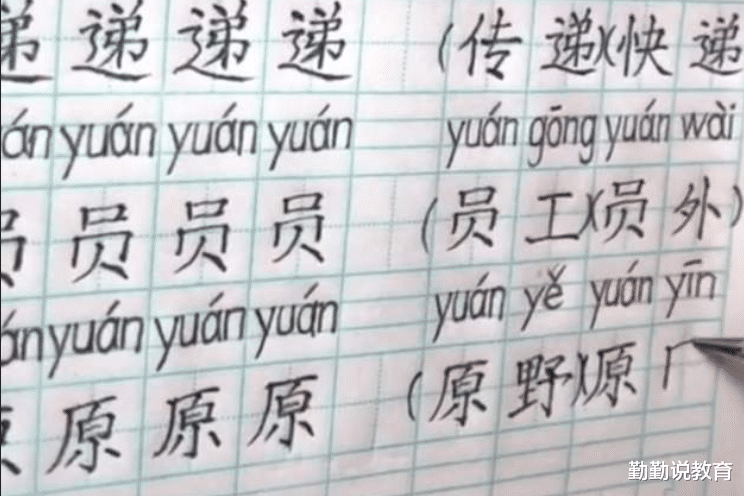 递 递 递 递 (传 递)(快 递
yuán yuán yuán yuán gōng yuán wài
员 员 员 员 (员 工)(员 外)
yuán yuán yuán yuán yě yuán yīn
原 原 原 (原 野)(原
勤勤说教育